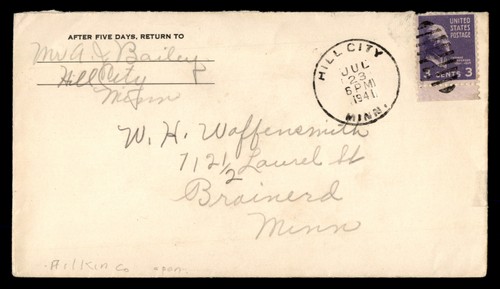 AFTER FIVE DAYS, RETURN TO
Mr A J Bailey
Hill City
Minn
HILL CITY
JUL
23
6 PM
1941
MINN.
UNITED
STATES
POSTAGE
3 CENTS 3
W. H. Waffensmith
712½ Laurel St
Brainerd
Minn
Aitkin Co